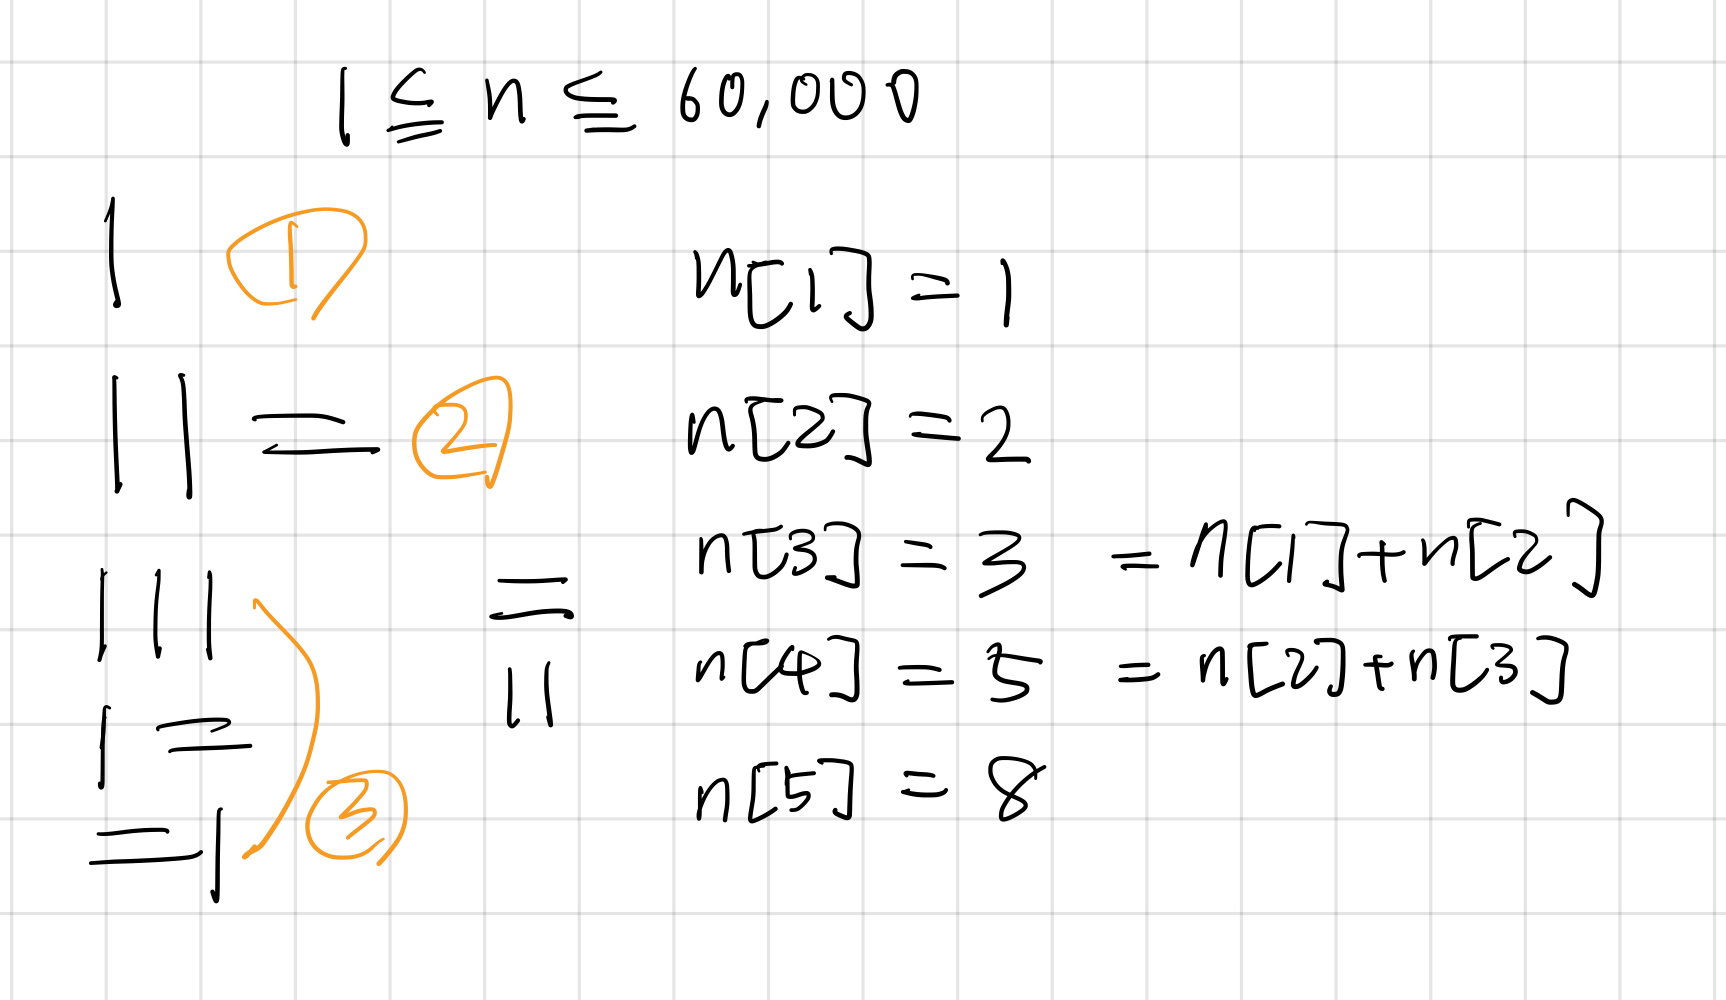 1 ≦ n ≦ 60,000
| ①
|| = ②
|||
| =
= | ③
=
||
n[1] = 1
n[2] = 2
n[3] = 3 = n[1]+n[2]
n[4] = 5 = n[2]+n[3]
n[5] = 8